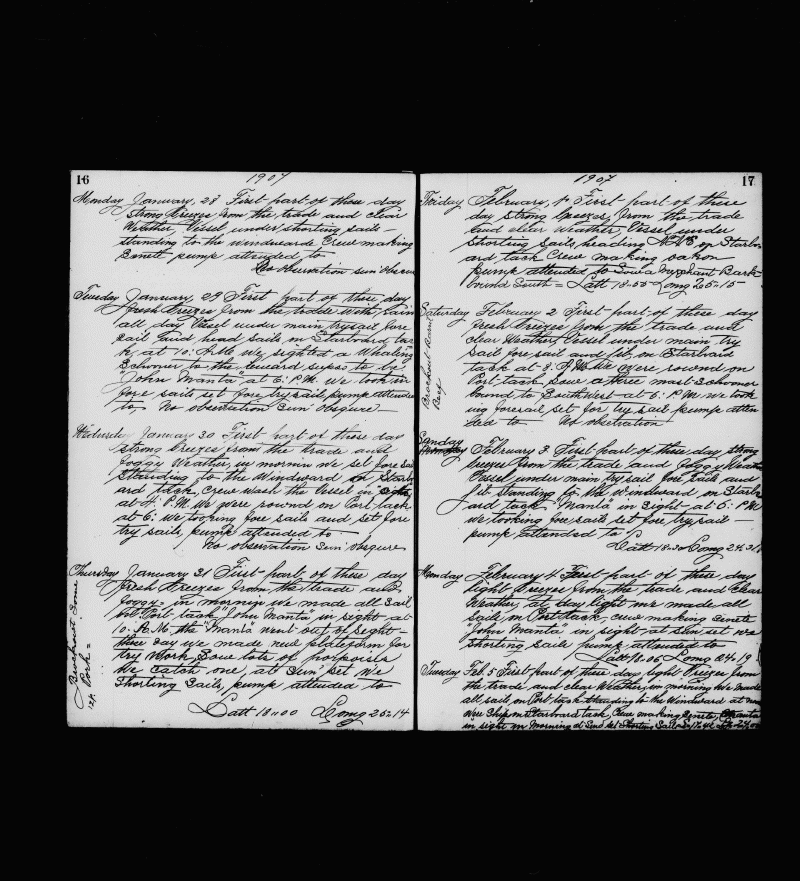 16
1907
Monday January, 28 First part of these day
strong breezes from the, trade and clear
Weather, Vessel under shorting sails -
standing to the windwards Crew making
Senett pump attended to
No observation sun obscure
Tuesday January 29 First part of these day
fresh breezes from the tradde with rain
all day Vessel under main try sail fore
sail and head sails on Starboard tac
k, at 10: A.M. we sighted a Whaling
Schooner to the leward supose to be
"John Manta" at 6: P.M. we took in
fore sails set fore try sail, pump attended
to No observation Sun obsqure
Wednesday January 30 First part of these day
strong breezes from the trade and
foggy Weather, in mornin we set fore Sai
Standing to the Windward on Starb
oard tack, Crew wash the Vessel in
at 4: P.M. We were rownd on Port tack
at 6: we tooking fore sails and set fore
try sails, pump attended to
No observation Sun obsqure
Thursday January 31 First part of these day
fresh breezes from the trade and
foggy = in mornin we made all sail
on Port tack "John Manta" in sight at
10: A.M. the "Manta" went out of sight -
these day we made new plateform for
try Work, Sow lots of porposies
We catch one, at Sun set We
Shorting Sails, pump attended to
Latt 18..00 Long 25..14
Pork =
17
1907
Friday February, 1st First part of these
day strong breezes, from the trade
and clear Weather, Vessel under
shorting sails, heading N.N.E, on Starbo
ard tack Crew making oakon
pump attended to Sow a Merchant Bark =
bound South = Latt 18-55 Long 25..15
Saturday February 2 First part of these day
fresh breezes from the trade and
clear Weather, Vessel under main try
sail fore sail and jib, on Starboard
tack at 8: A.M. We were rownd on
Port tack Sow a three mast Schooner
bound to SouthWest at 6: P.M. we took
ing foresail set for try sail pump atten
ded to No observation
Beef
Sunday
February 3 First part of these day strong
breezes from the trade and foggy Weather
Vessel under main try sail fore sails and
jib Standing to the Windward on Starbo
ard tack "Manta" in Sight at 6: P.M.
we tooking fore sails set fore try sail -
pump attended to
Latt 18..30 Long 24..31
Monday February 4 First part of these day
light breezes from the trade and Clear
Weather, at day light we made all
sails on Port tack, crew making Senete
"John Manta" in sight at sun set we
shorting sails pump attended to
Latt 18..06 Long 24..19
Tuesday Feb. 5 First part of these day light breezes from
the trade and clear Weather, in morning We made
all sail on Port tack Standing to the Windward at noon
Were Ship on Starboard tack, Crew making Senete, Manta
in sight in Morning at Sund set Shorting Sails